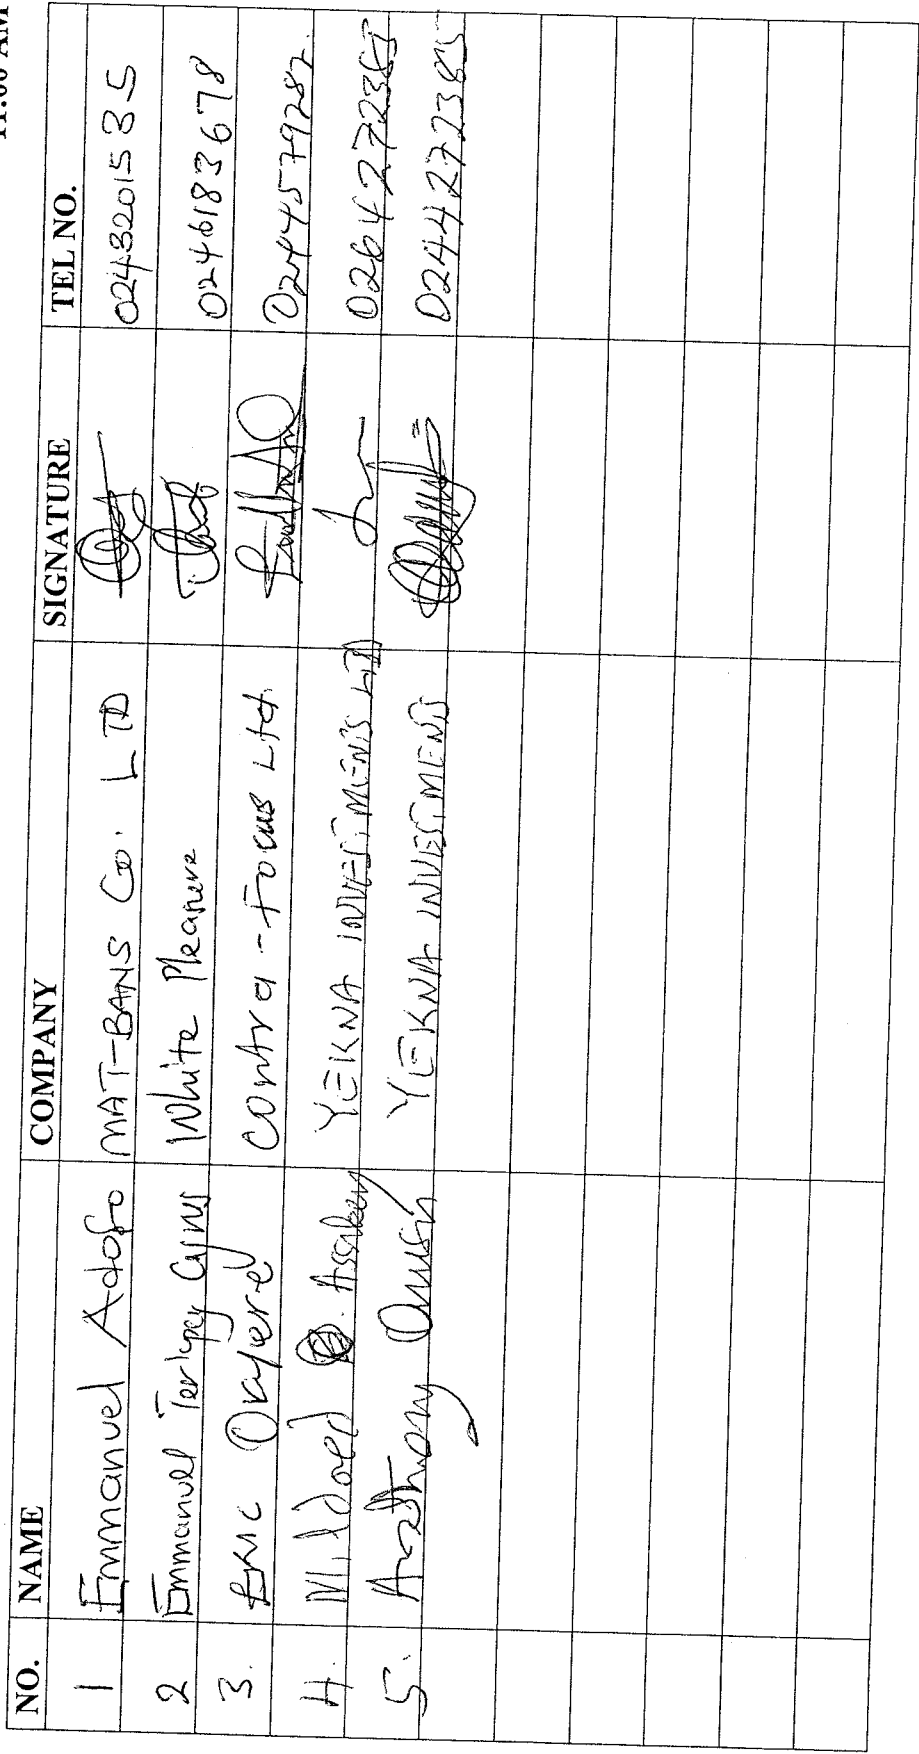 11:00 AM
NO. NAME COMPANY SIGNATURE TEL NO.
1 Emmanuel Adofo MAT-BANS Co. LTD 0243201535
2 Emmanuel Tertepey Cyrus White Pleasure 0246183678
3. Eric Okyere Contra-Focus Ltd. 0244579282
4. Mildred YEKNA INVESTMENTS LTD 0264272385
5. Anthony YEKNA INVESTMENTS 0244272385